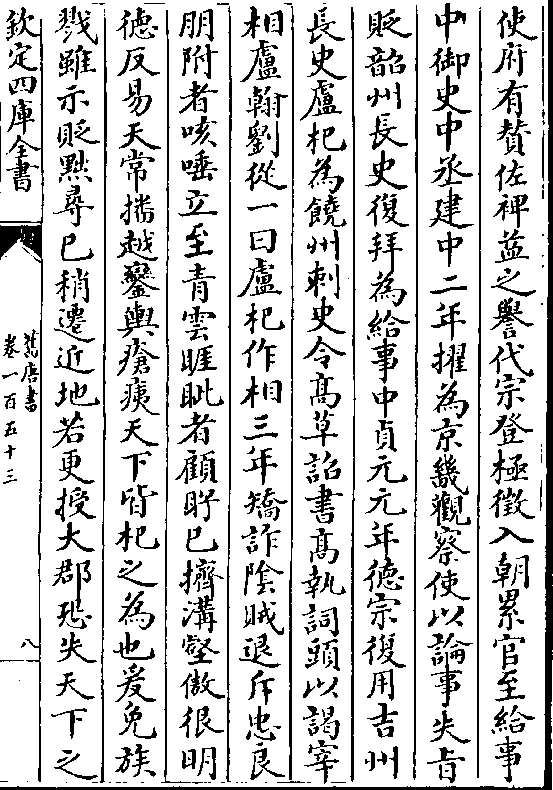 使府有賛佐裨益之譽代宗登極徵入朝累官至給事
中御史中丞建中二年擢為京畿觀察使以論事失旨
貶韶州長史復拜為給事中貞元元年德宗復用吉州
長史盧杞為饒州刺史令髙草詔書髙執詞頭以謁宰
相盧翰劉從一曰盧杞作相三年矯詐陰賊退斥忠良
朋附者咳唾立至青雲睚眦者顧盻已擠溝壑傲很明
德反易天常播越鑾輿瘡痍天下皆杞之為也爰免族
戮雖示貶黜尋已稍遷近地若更授大郡恐失天下之
欽定四庫全書
舊唐書
卷一百五十三
八